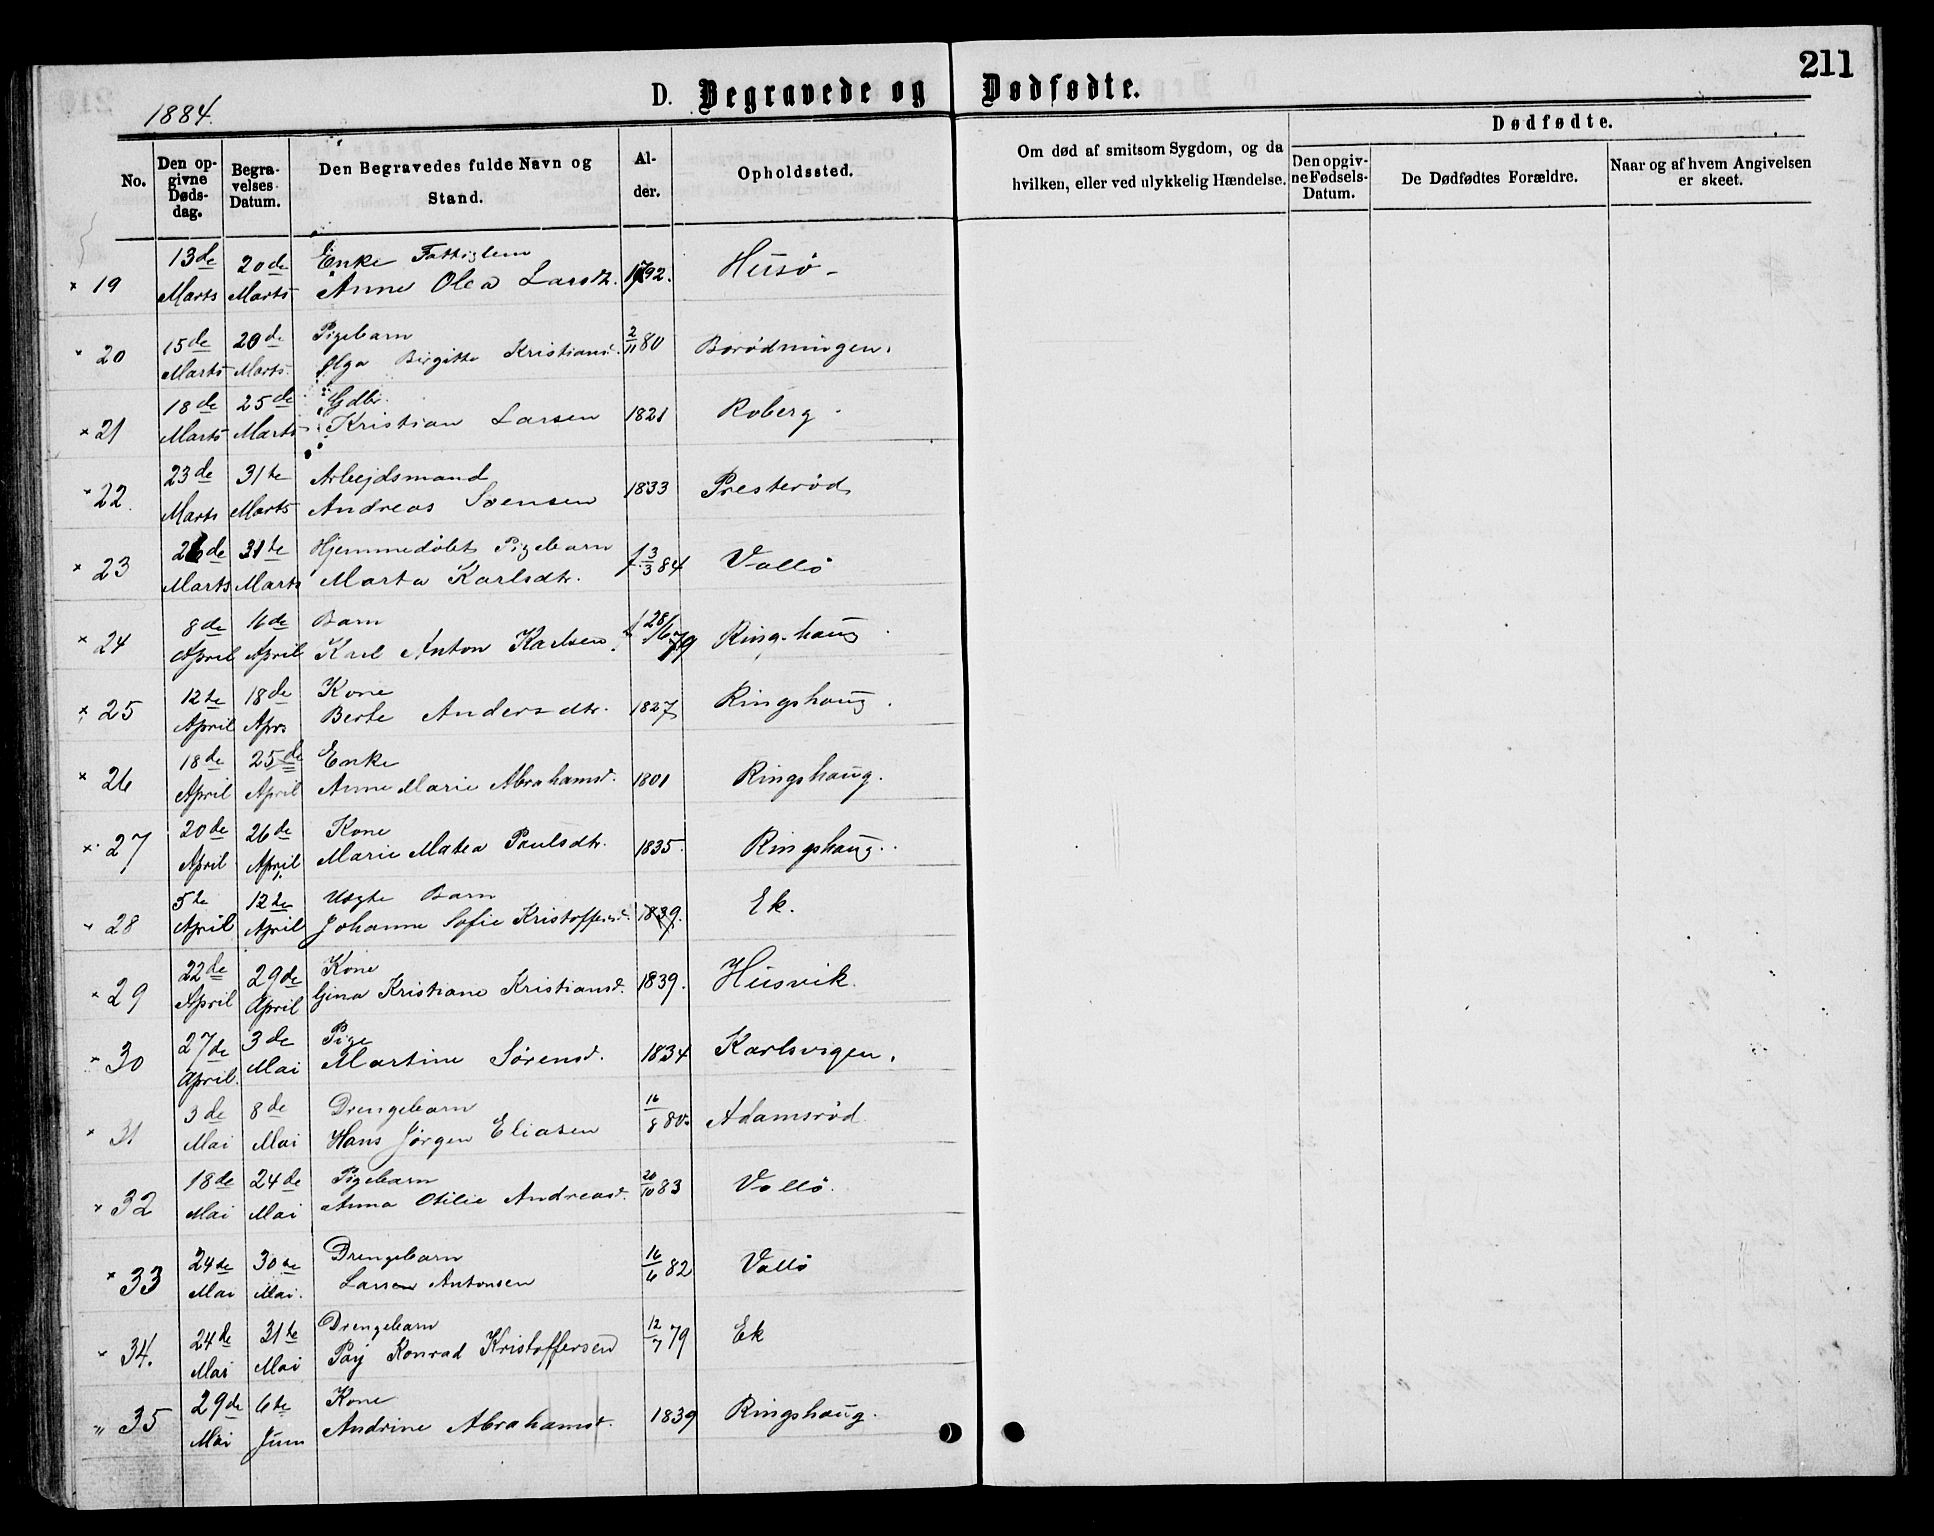 211
1884.
D. Begravede og Dødfødte.
No.
Den op-
givne
Døds-
dag.
Begra-
velses-
Datum.
Den Begravedes fulde Navn og
Stand.
Al-
der.
Opholdssted.
Om død af smitsom Sygdom, og da
hvilken, eller ved ulykkelig Hændelse.
Dødfødte.
Den opgiv-
ne Fødsels-
Datum.
De Dødfødtes Forældre.
Naar og af hvem Angivelsen
er skeet.
13de 20de Enke Fattiglem
× 19 Marts Marts Anne Olea Larsdtr. 1792. Husø -
15de 20de Pigebarn
× 20 Marts Marts. Olga Birgitte Kristiansd. 2/11 80 Borødningen.
18de 25de Gdbr.
× 21 Marts Marts Kristian Larsen 1821 Roberg -
23de 31te Arbejdsmand
× 22. Marts Marts Andreas Svensen 1833 Presterød
26de 31te Hjemmedøbt Pigebarn
× 23 Marts Marts Marta Karlsdtr. f. 3/3 84 Vallø
8de 16de Barn
× 24 April April Karl Anton Karlsen. f. 28/6 79 Ringshaug
12te 18de Kone
× 25 April Apr Berte Andersdtr. 1827 Ringshaug.
18de 25de Enke
× 26 April April Anne Marie Abrahamsd. 1801 Ringshaug.
20de 26de Kone
× 27 April April Marie Matea Paulsdtr. 1835. Ringshaug.
5te 12te Uægte Barn
× 28 April April Johanne Sofie Kristoffersd. 1839. Ek.
22de 29de Kone
× 29 April April Gina Kristiane Kristiansd. 1839. Husvik.
27de 3de Pige
× 30 April. Mai Martine Sørensd. 1834 Karlsvigen.
3de 8de Drengebarn
× 31 Mai Mai Hans Jørgen Eliasen 16/8 80. Adamsrød
18de 24de Pigebarn
× 32 Mai Mai Anna Otilie Andreasd. 20/10 83 Vallø.
24de 30te Drengebarn
× 33 Mai Mai. Larsen Antonsen 16/6 82 Vallø
24de 31te Drengebarn
× 34. Mai Mai Konrad Kristoffersen 12/7 79 Ek
29de 6te Kone
" 35 Mai Juni Andrine Abrahamsd. 1839 Ringshaug.